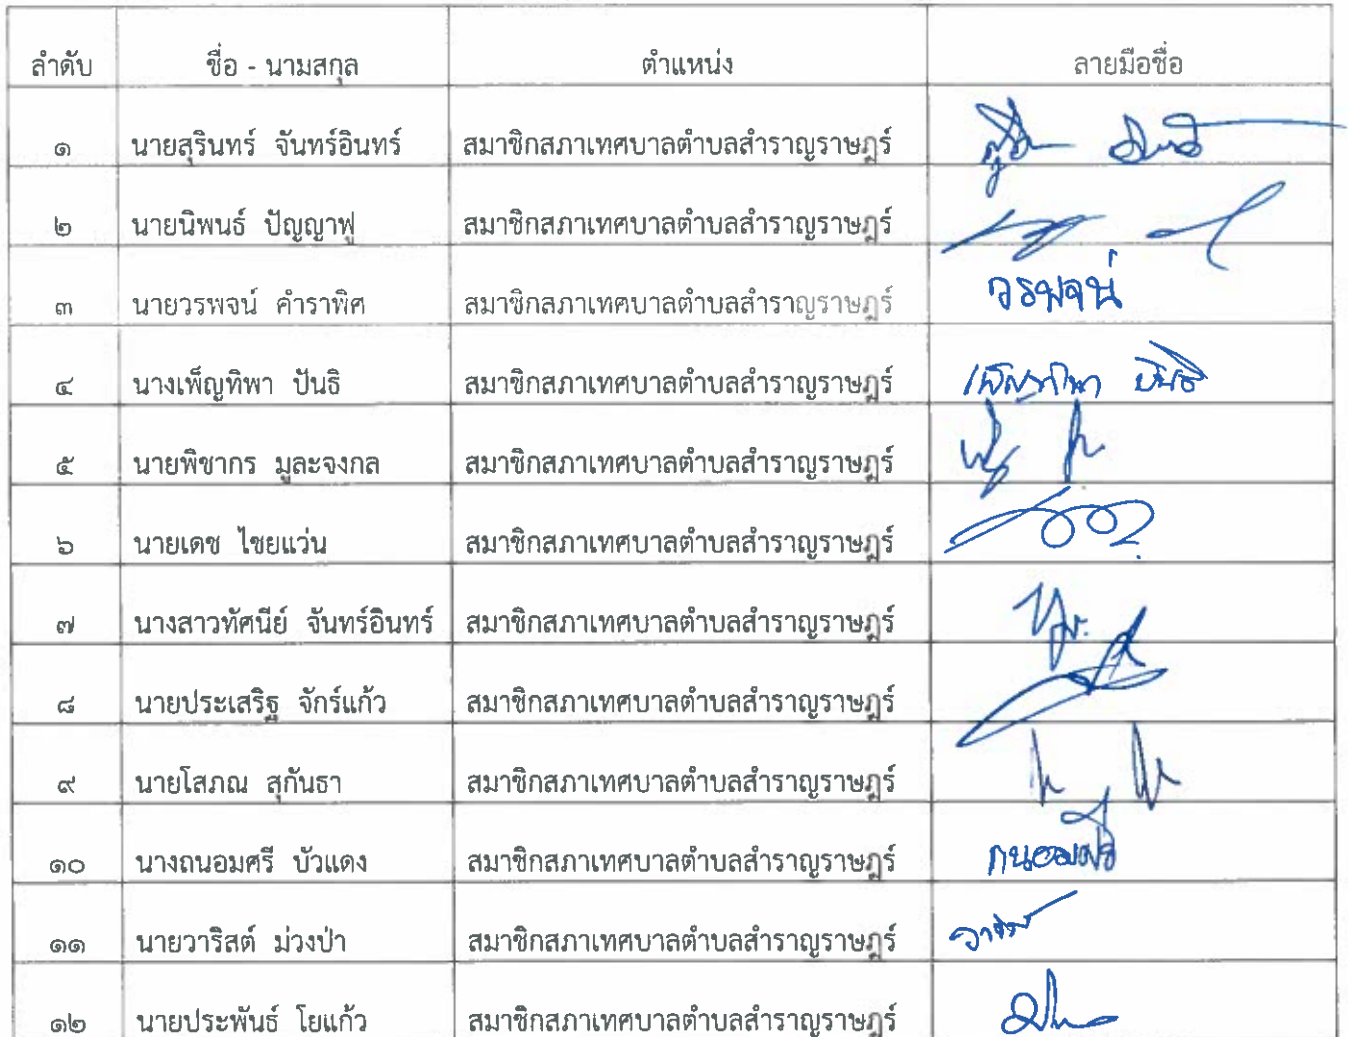 ลำดับ ชื่อ - นามสกุล ตำแหน่ง ลายมือชื่อ
๑ นายสุรินทร์ จันทร์อินทร์ สมาชิกสภาเทศบาลตำบลสำราญราษฎร์
๒ นายนิพนธ์ ปัญญาฟู สมาชิกสภาเทศบาลตำบลสำราญราษฎร์
๓ นายวรพจน์ คำราพิศ สมาชิกสภาเทศบาลตำบลสำราญราษฎร์ วรพจน์
๔ นางเพ็ญทิพา ปันธิ สมาชิกสภาเทศบาลตำบลสำราญราษฎร์ เพ็ญทิพา ปันธิ
๕ นายพิชากร มูละจงกล สมาชิกสภาเทศบาลตำบลสำราญราษฎร์
๖ นายเดช ไชยแว่น สมาชิกสภาเทศบาลตำบลสำราญราษฎร์
๗ นางสาวทัศนีย์ จันทร์อินทร์ สมาชิกสภาเทศบาลตำบลสำราญราษฎร์
๘ นายประเสริฐ จักร์แก้ว สมาชิกสภาเทศบาลตำบลสำราญราษฎร์
๙ นายโสภณ สุกันธา สมาชิกสภาเทศบาลตำบลสำราญราษฎร์
๑๐ นางถนอมศรี บัวแดง สมาชิกสภาเทศบาลตำบลสำราญราษฎร์ ถนอมศรี
๑๑ นายวาริสต์ ม่วงป่า สมาชิกสภาเทศบาลตำบลสำราญราษฎร์
๑๒ นายประพันธ์ โยแก้ว สมาชิกสภาเทศบาลตำบลสำราญราษฎร์